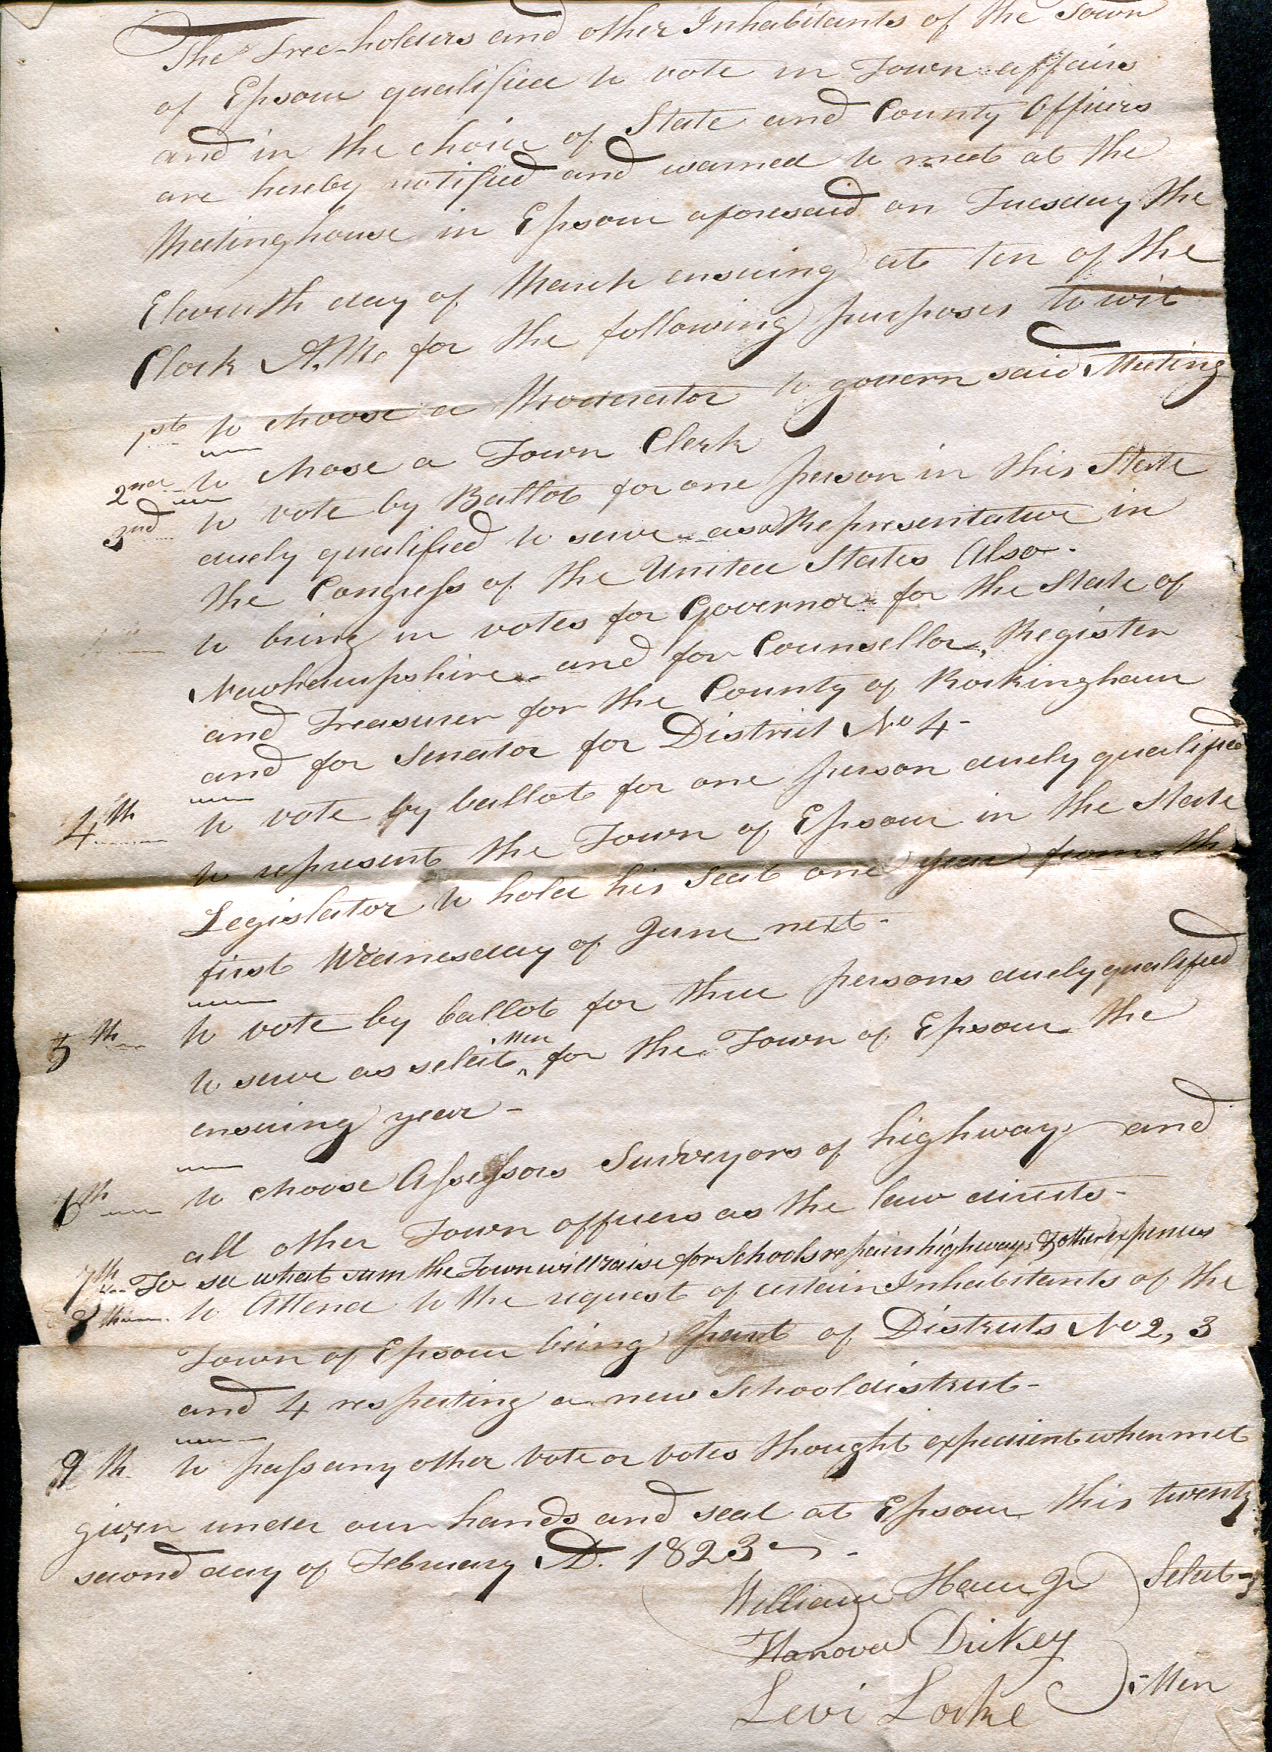 The Free-holders and other Inhabitants of the Town
of Epsom qualified to vote in Town affairs
and in the choice of State and County Officirs
are hereby notified and warned to meet at the
Meetinghouse in Epsom aforesaid on Tuesday the
Eleventh day of March ensuing at ten of the
Clock A.M. for the following purposes to wit
1st to choose a Moderator to govern said Meeting
2nd to chose a Town Clerk
3rd to vote by Ballot for one person in this State
duely qualified to serve as a Representative in
the Congress of the United States Also-
to bring in votes for Governor for the State of
Newhampshire and for Counsellor, Register
and Treasurer for the County of Rockingham
and for Senator for District No 4-
4th to vote by ballot for one person duely qualified
to represent the Town of Epsom in the State
Legislator to hold his seat one year from th
first Wednesday of June next-
5th to vote by ballot for three persons duely qualified
to serve as select Men for the Town of Epsom the
ensuing year-
6th to choose Assessors Surveyors of highways and
all other Town officers as the law directs-
7th To see what sum the Town will raise for Schools repairs highways & other expences
8th to Attend to the request of certain Inhabitants of the
Town of Epsom being part of Districts No 2, 3
and 4 respecting a new School district-
9th to pass any other vote or votes thought expedient when met
given under our hands and seal at Epsom this twenty
second day of February AD. 1823
William Ham Jr Select-
Hanover Dickey
Levi Locke -Men